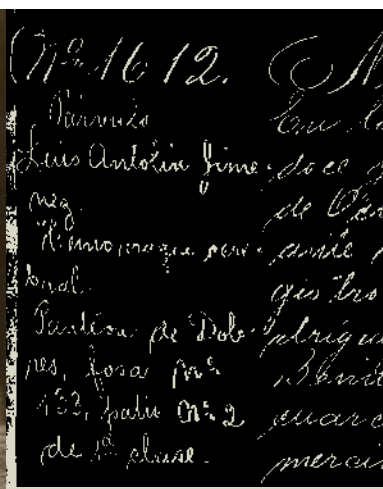 Nº 1612.
Párvulo
Luis Antolin Jime-
nez.
Hemorragia cere-
bral.
Panteon de Dolo-
res, fosa Nº
patio Nº 2
de clase.
En la
doce
de
ante
gistro
Benit
cuare